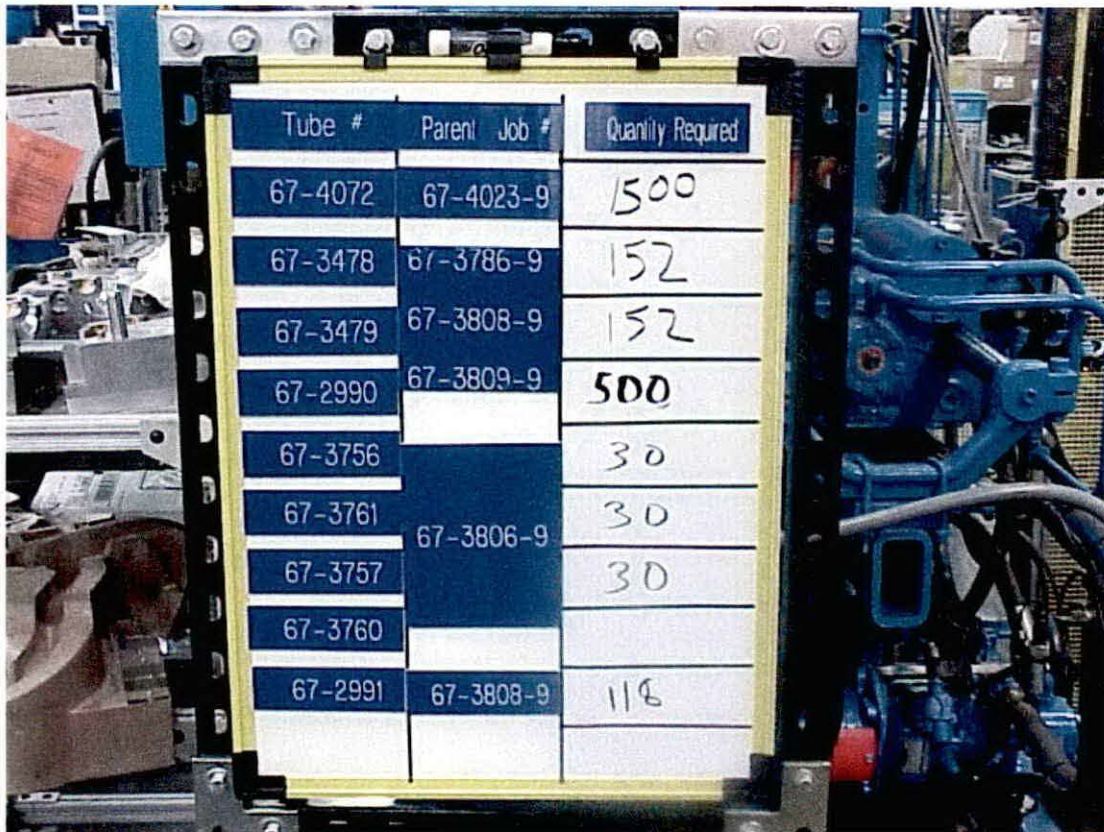 Tube # Parent Job # Quantity Required
67-4072 67-4023-9 1500
67-3478 67-3786-9 152
67-3479 67-3808-9 152
67-2990 67-3809-9 500
67-3756 30
67-3761 67-3806-9 30
67-3757 30
67-3760
67-2991 67-3808-9 118